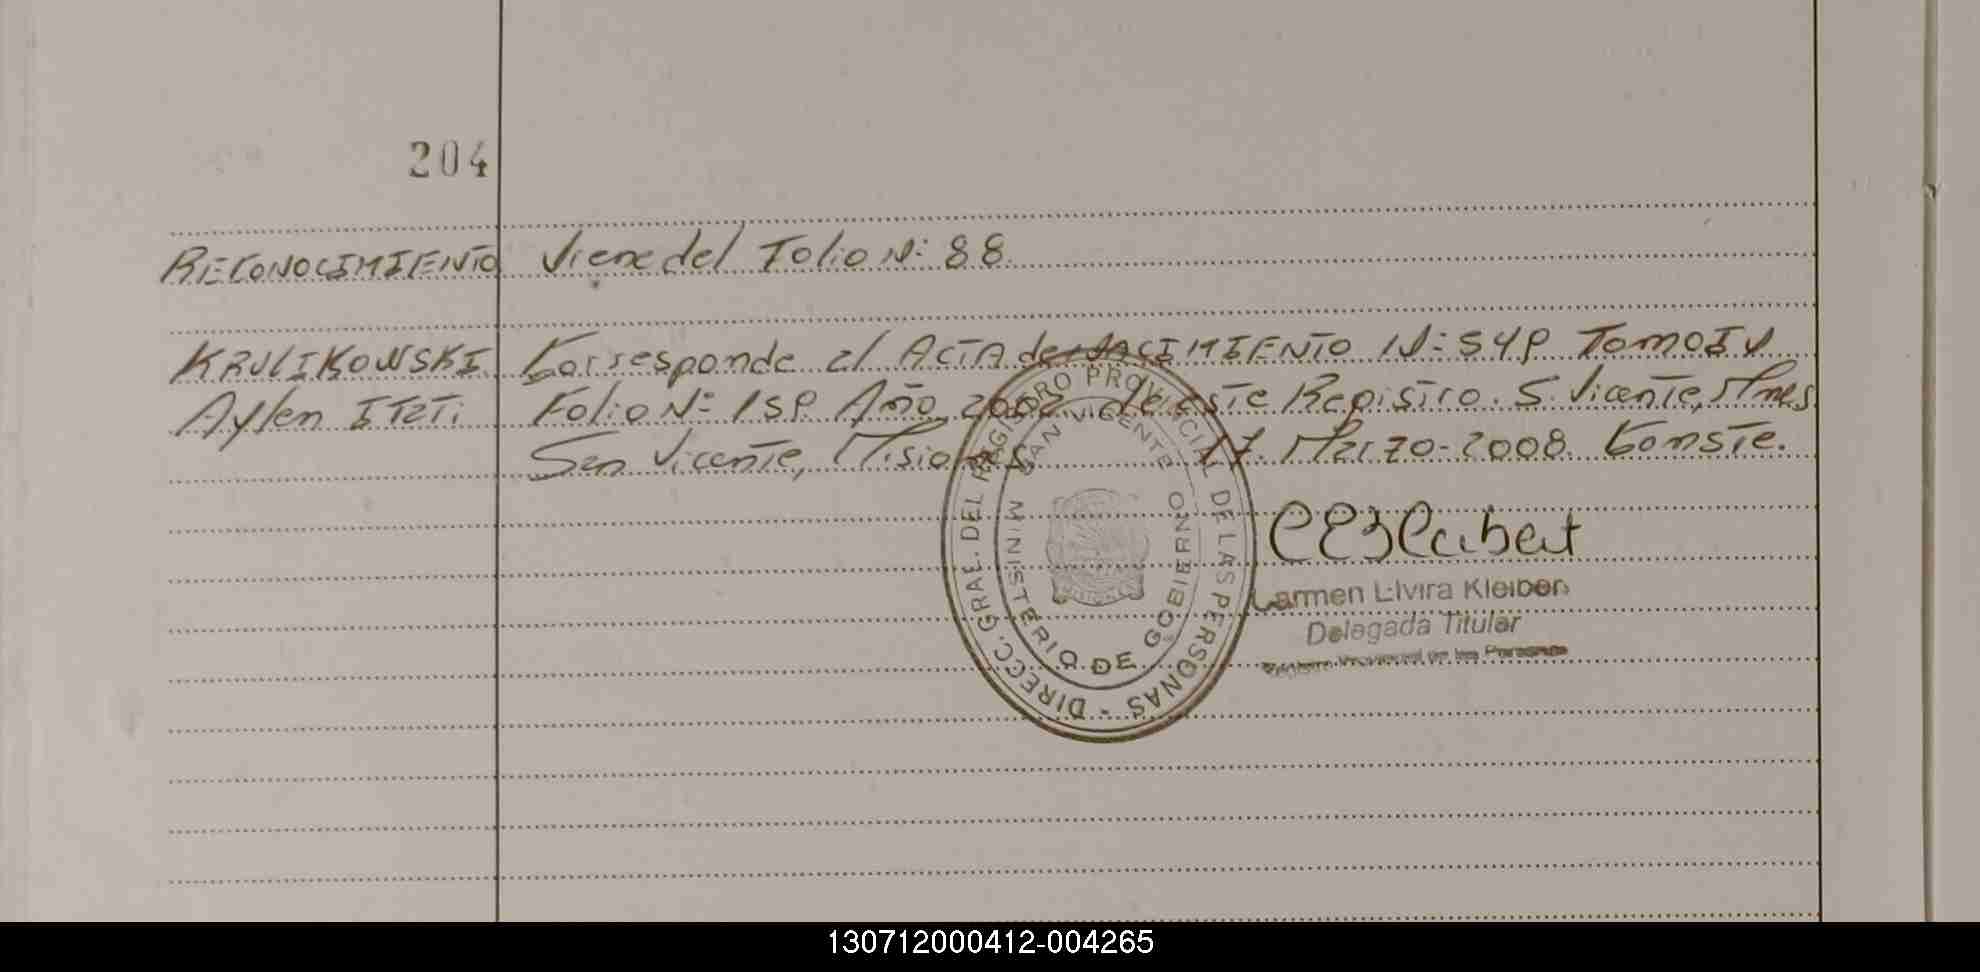 204
RECONOCIMIENTO Viene del Folio N: 88.
KRULIKOWSKI Corresponde al ACTA de NACIMIENTO N: 549 Tomo IV
Aylen ITATI. Folio N: 159 Año 2002 de este Registro. S. Vicente, Mnes
San Vicente, Misiones 17. Marzo-2008. Conste.
DIRECC. GRAL. DEL REGISTRO PROVINCIAL DE LAS PERSONAS -
MINISTERIO DE GOBIERNO
SAN VICENTE
MISIONES
Carmen Elvira Kleiber
Delegada Titular
Registro Provincial de las Personas
130712000412-004265